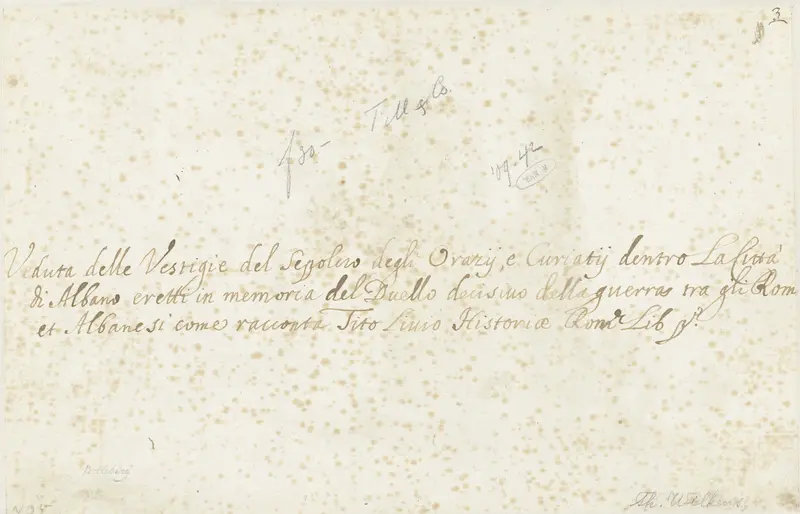 3
Till & Co.
f 30-
'09.42
Veduta delle Vestigie del Sepolcro degli Orazÿ, e Curiatÿ dentro La Città
di Albano eretti in memoria del Duello decisivo della guerras tra gli Rom
et Albanesi come racconta Tito Livio Historiæ Rom. Lib p.º
Th. Wilkens